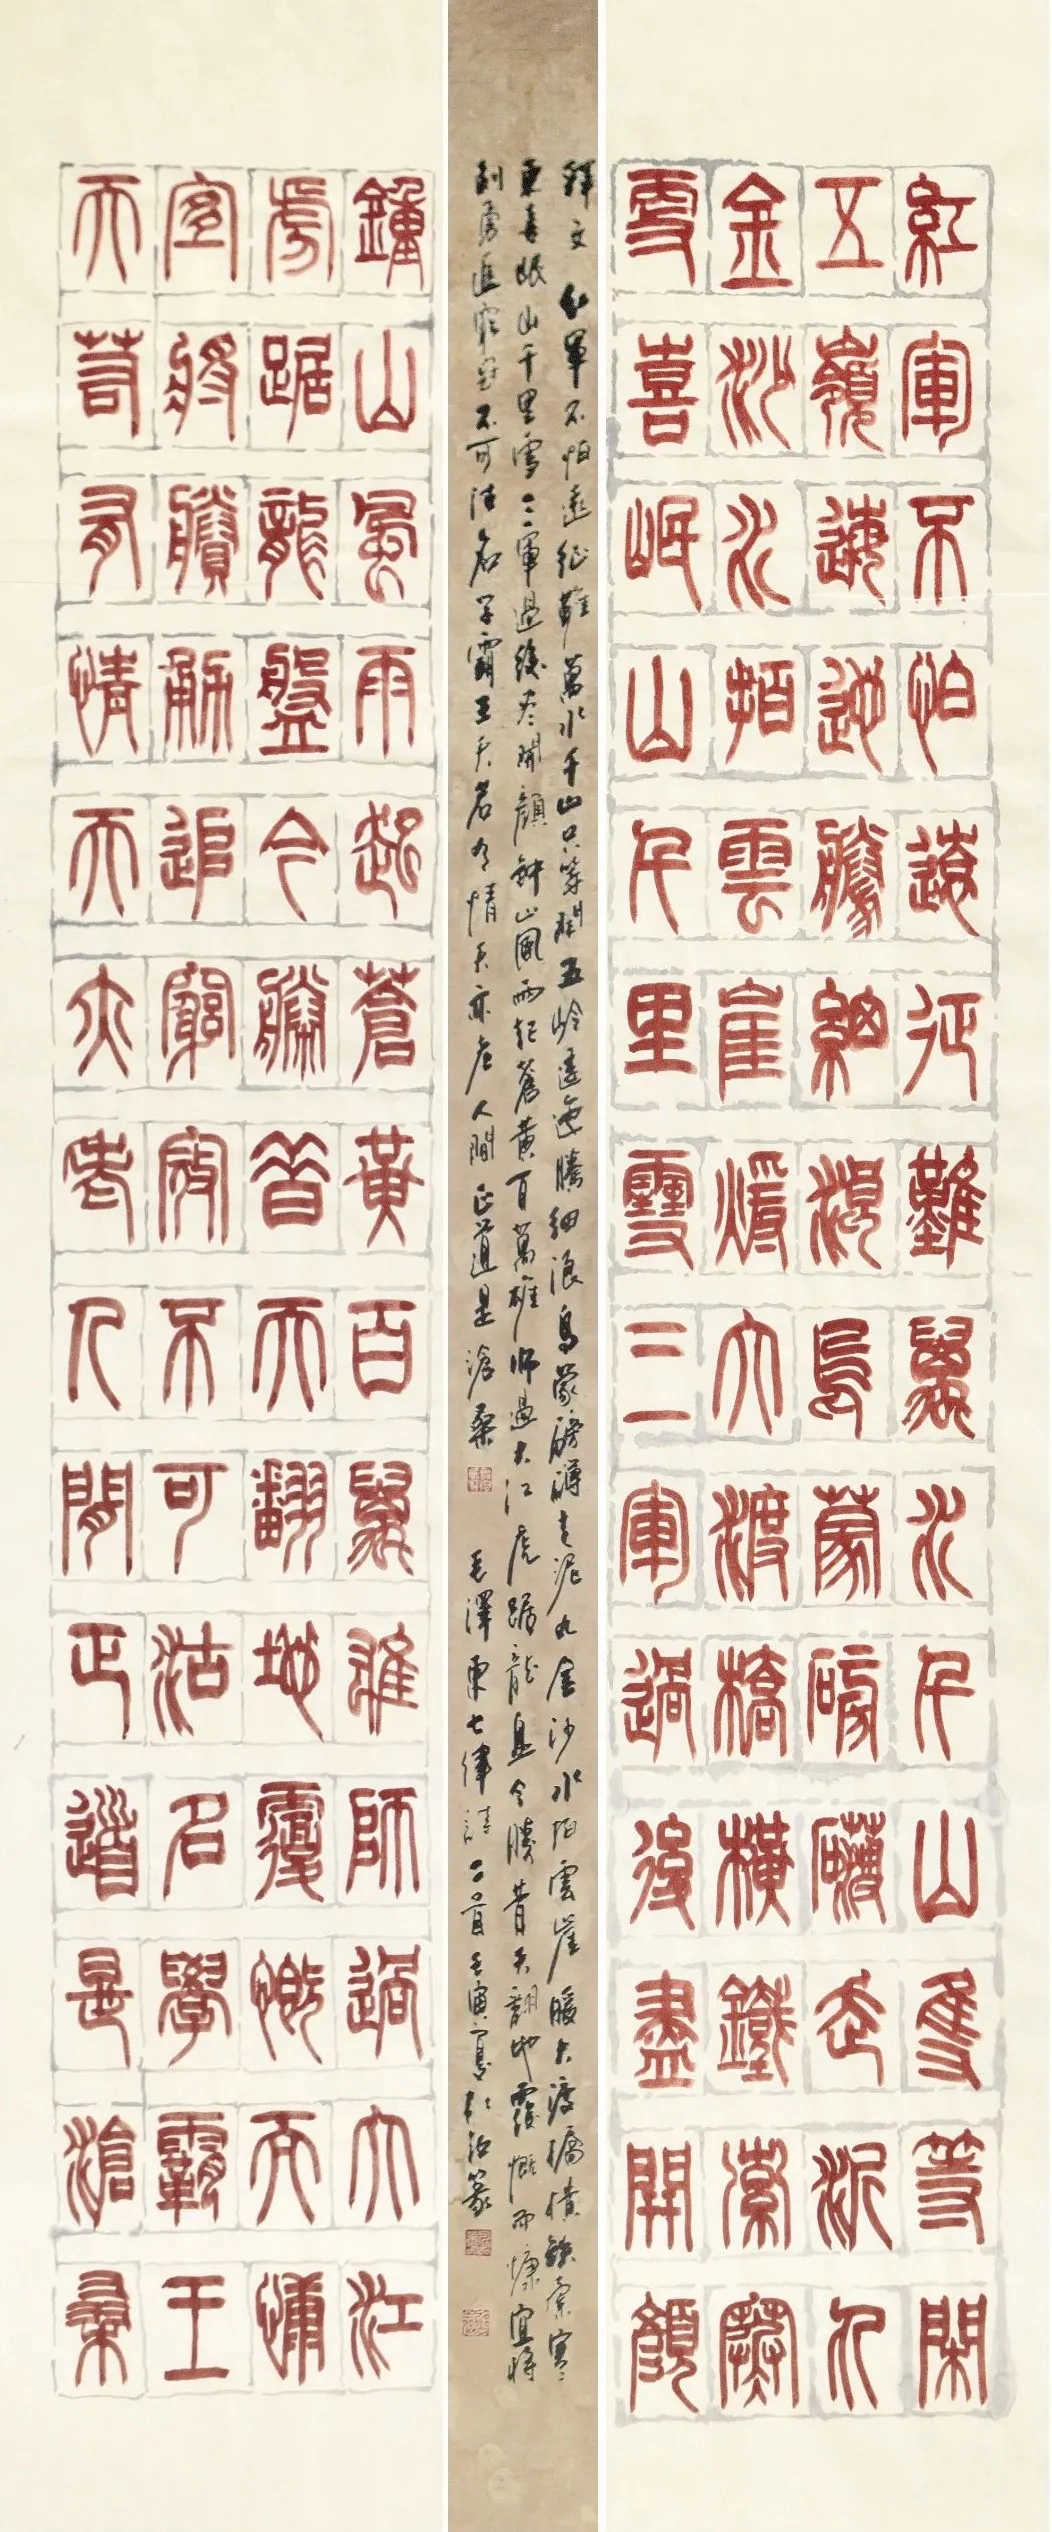 紅軍不怕遠征難萬水千山隻等閑
五嶺逶迤騰細浪烏蒙磅礴走泥丸
金沙水拍雲崖暖大渡橋橫鐵索寒
更喜岷山千里雪三軍過後盡開顏
釋文 紅軍不怕遠征難萬水千山只等閑五岭逶迤騰細浪烏蒙磅礴走泥丸金沙水拍雲崖暖大渡橋橫鐵索寒
更喜岷山千里雪三軍過後尽開顏鈡山風雨起蒼黃百萬雄師過大江虎踞龍盘今勝昔天翻地覆慨而慷宜將
剩勇追窮寇不可沽名学霸王天若有情天亦老人間正道是滄桑 毛澤東七律詩二首壬寅夏
鐘山風雨起蒼黃百萬雄師過大江
虎踞龍盤今勝昔天翻地覆慨而慷
宜將賸勇追窮寇不可沽名學霸王
天若有情天亦老人間正道是滄桑